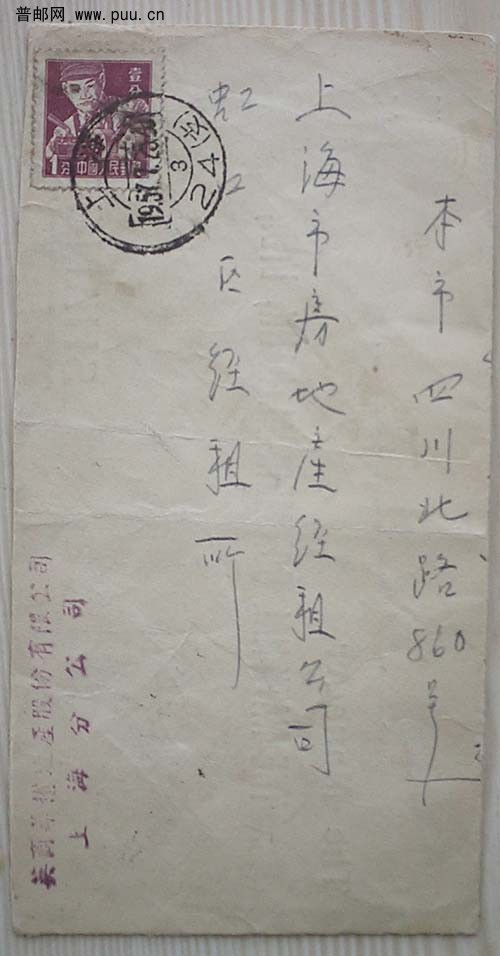 普邮网 www.puu.cn
本市四川北路860号
上海市房地產经租公司
虹口区经租所
壹分
1分 中國人民郵政
上海
1957
3
24
英商 產股份有限公司
上海分公司